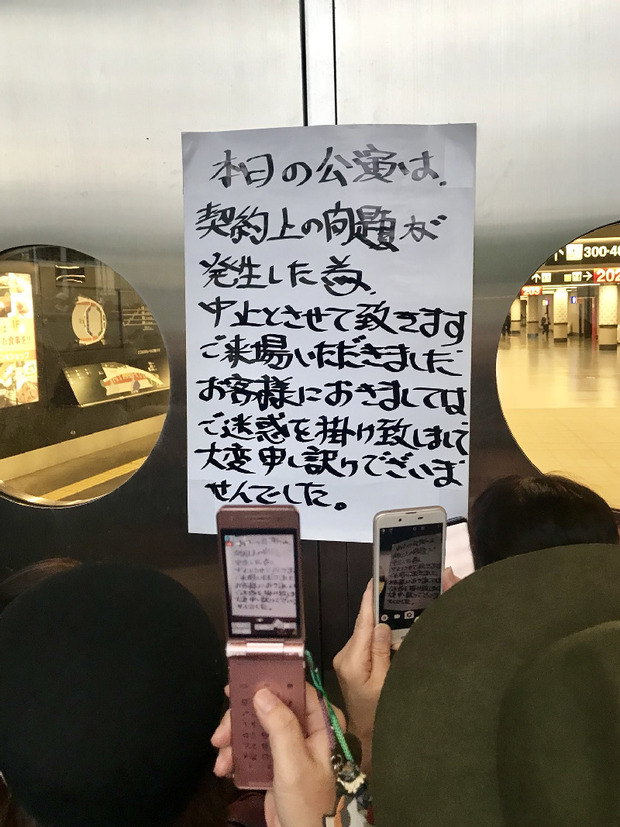 本日の公演は、
契約上の問題が
発生した為、
中止とさせて致きます
ご来場いただきました
お客様におきましては
ご迷惑を掛け致しまして
大変申し訳けございま
せんでした。
300-4
202
203